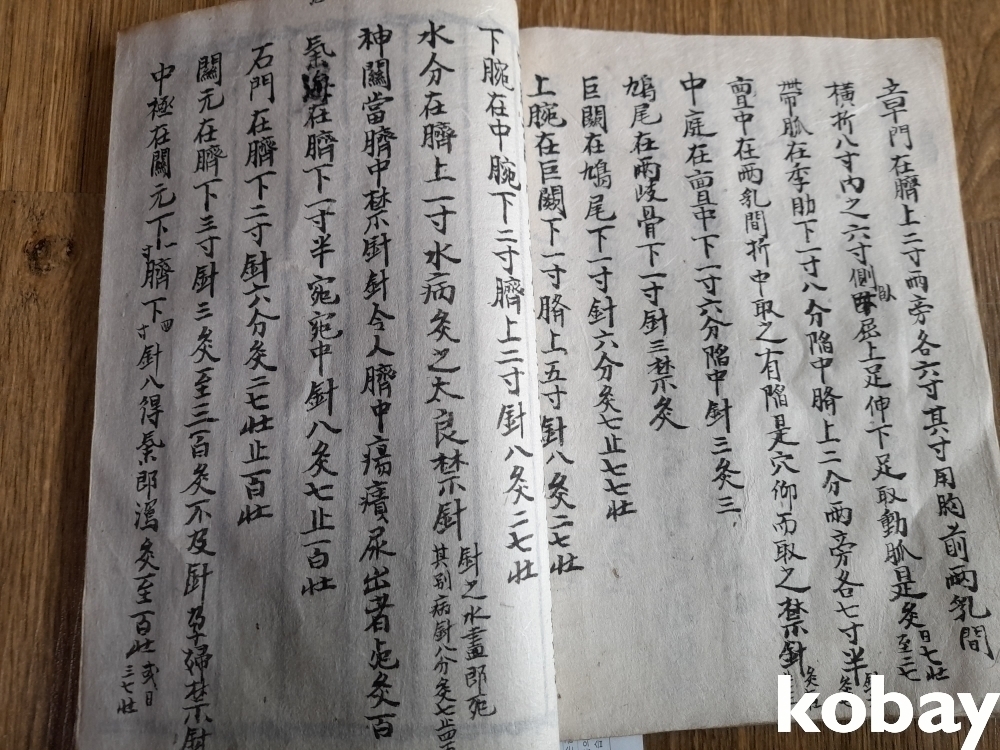 章門在臍上二寸兩旁各六寸其寸用胸前兩乳間
橫折八寸內之六寸側臥屈上足伸下足取動脈是灸日七壯至二七
帶脈在季肋下一寸八分陷中臍上二分兩旁各七寸半
亶中在兩乳間折中取之有陷是穴仰而取之禁針
中庭在亶中下一寸六分陷中針三灸三
鳩尾在兩歧骨下一寸針三禁灸
巨闕在鳩尾下一寸針六分灸七止七七壯
上脘在巨闕下一寸臍上五寸針八灸二七壯
下脘在中脘下二寸臍上二寸針八灸二七壯
水分在臍上一寸水病灸之太良禁針針之水盡即死其別病針八分灸七止四百
神闕當臍中禁針針令人臍中瘍潰尿出者死灸百
氣海在臍下一寸半宛宛中針八灸七止百壯
石門在臍下二寸針六分灸二七壯止百壯
關元在臍下三寸針三灸至三百灸不及針孕婦禁針
中極在關元下一寸臍下四寸針八得氣即瀉灸至百壯或日三七壯
kobay